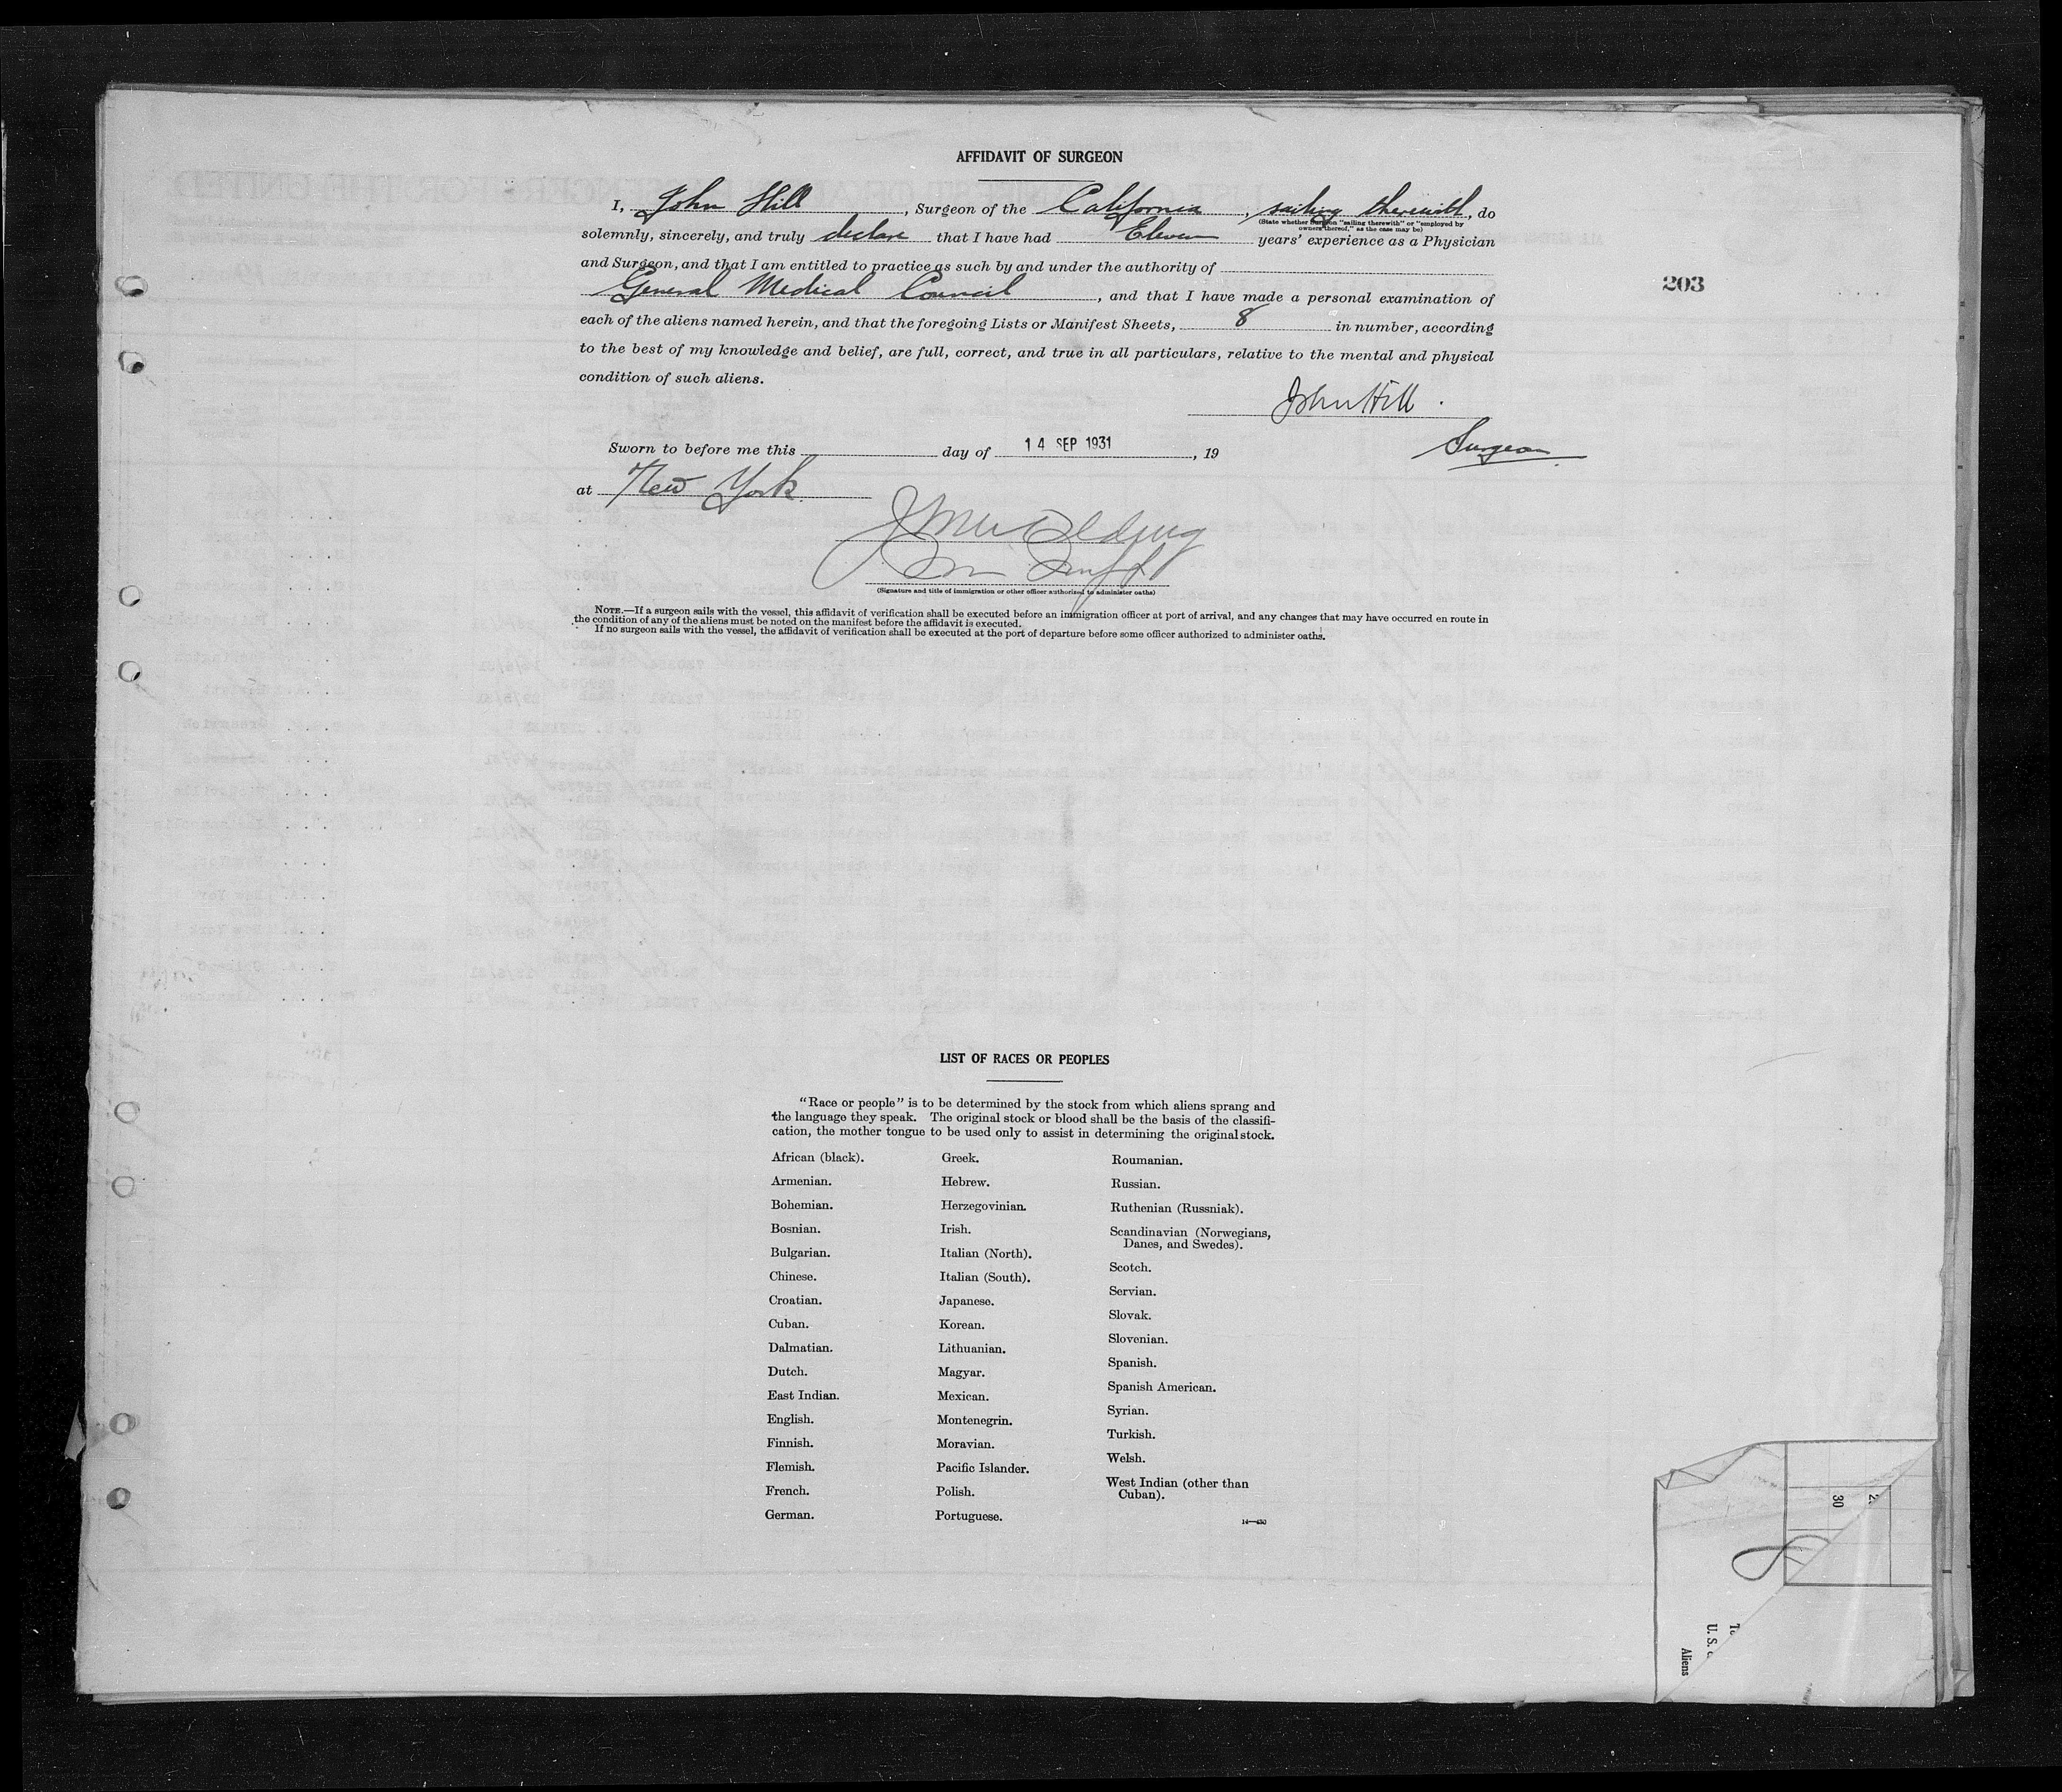 AFFIDAVIT OF SURGEON
I, John Hill, Surgeon of the California, sailing therewith, do
(State whether Surgeon "sailing therewith" or "employed by
owners thereof," as the case may be)
solemnly, sincerely, and truly declare that I have had Eleven years' experience as a Physician
and Surgeon, and that I am entitled to practice as such by and under the authority of
General Medical Council, and that I have made a personal examination of
each of the aliens named herein, and that the foregoing Lists or Manifest Sheets, 8 in number, according
to the best of my knowledge and belief, are full, correct, and true in all particulars, relative to the mental and physical
condition of such aliens.
203
John Hill.
Surgeon.
Sworn to before me this day of 14 SEP 1931, 19
at New York.
(Signature and title of immigration or other officer authorized to administer oaths)
NOTE.—If a surgeon sails with the vessel, this affidavit of verification shall be executed before an immigration officer at port of arrival, and any changes that may have occurred en route in
the condition of any of the aliens must be noted on the manifest before the affidavit is executed.
If no surgeon sails with the vessel, the affidavit of verification shall be executed at the port of departure before some officer authorized to administer oaths.
LIST OF RACES OR PEOPLES
"Race or people" is to be determined by the stock from which aliens sprang and
the language they speak. The original stock or blood shall be the basis of the classifi-
cation, the mother tongue to be used only to assist in determining the original stock.
African (black).
Armenian.
Bohemian.
Bosnian.
Bulgarian.
Chinese.
Croatian.
Cuban.
Dalmatian.
Dutch.
East Indian.
English.
Finnish.
Flemish.
French.
German.
Greek.
Hebrew.
Herzegovinian.
Irish.
Italian (North).
Italian (South).
Japanese.
Korean.
Lithuanian.
Magyar.
Mexican.
Montenegrin.
Moravian.
Pacific Islander.
Polish.
Portuguese.
Roumanian.
Russian.
Ruthenian (Russniak).
Scandinavian (Norwegians,
Danes, and Swedes).
Scotch.
Servian.
Slovak.
Slovenian.
Spanish.
Spanish American.
Syrian.
Turkish.
Welsh.
West Indian (other than
Cuban).
14—430
30
U. S.
Aliens